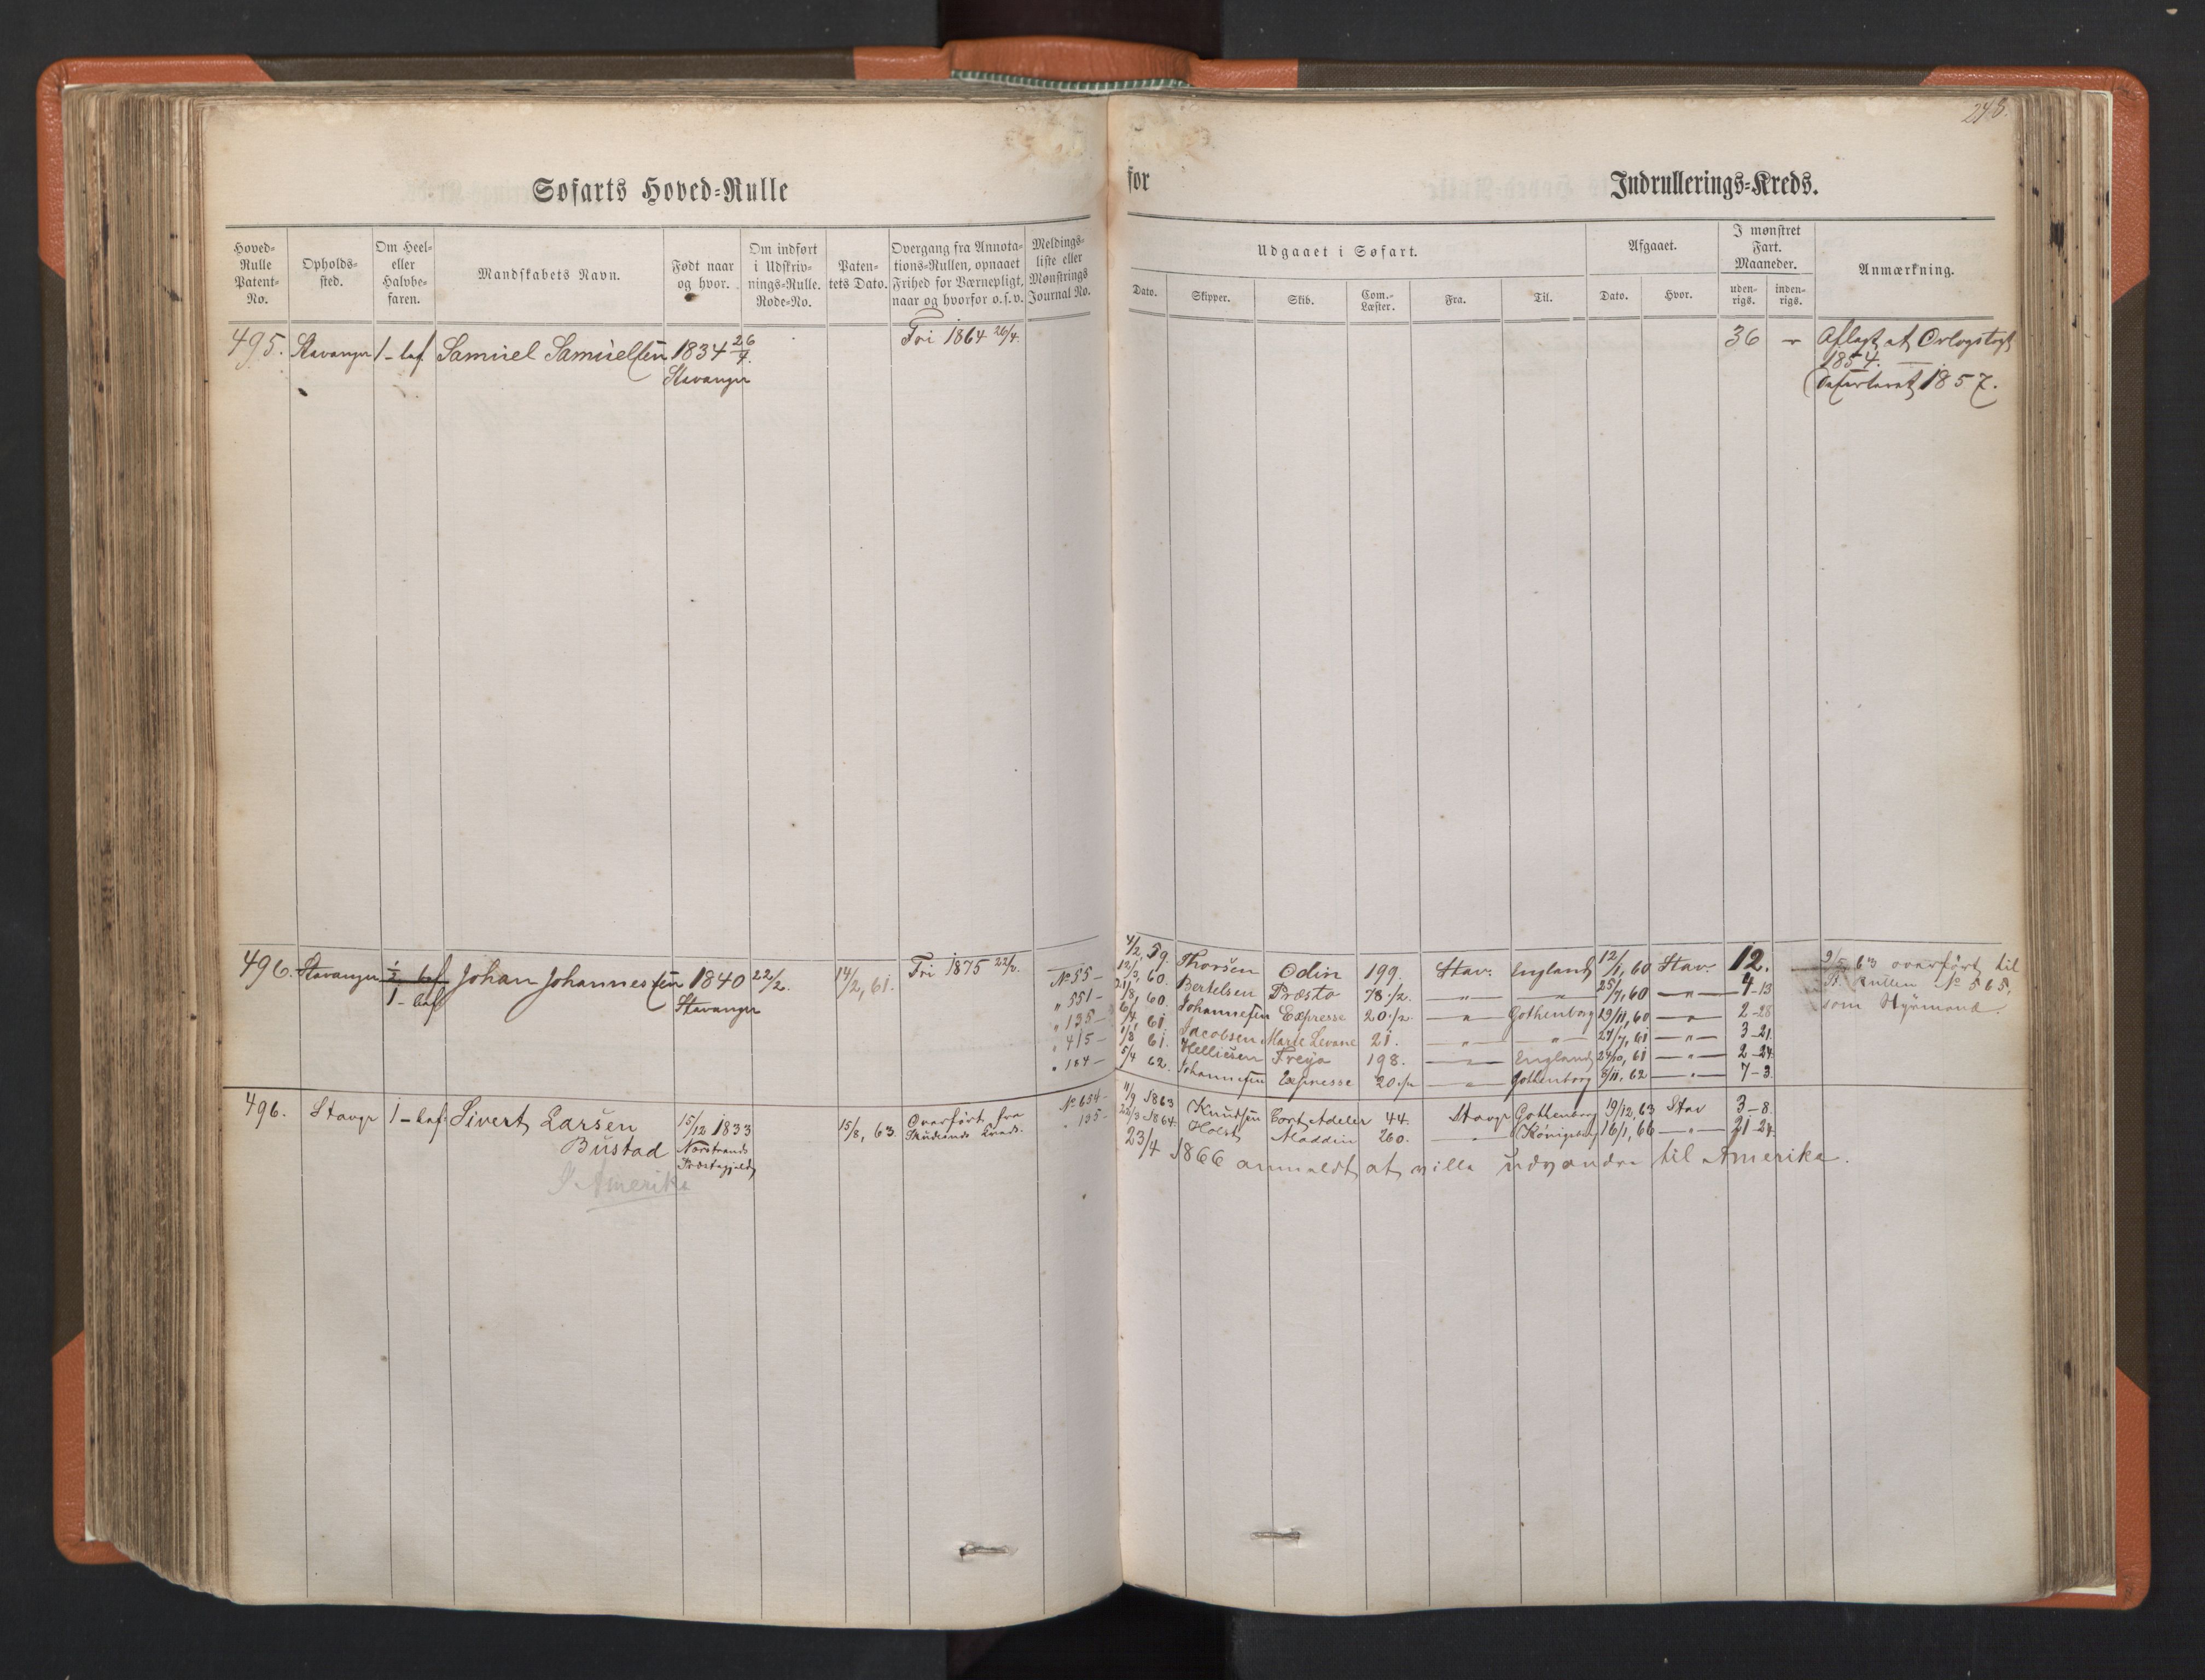 248.
Søfarts Hoved-Rulle for Indrullerings-Kreds.
Hoved-Rulle Patent-No.
Opholds-sted.
Om Heel- eller Halvbe-faren.
Mandskabets Navn.
Født naar og hvor.
Om indført i Udskriv-nings-Rulle. Rode-No.
Paten-tets Dato.
Overgang fra Annota-tions-Rullen, opnaaet Frihed for Værnepligt, naar og hvorfor o.s.v.
Meldings-liste eller Mønstrings Journal No.
Udgaaet i Søfart.
Dato. Skipper. Skib. Com.-Læster. Fra. Til.
Afgaaet.
Dato. Hvor.
I mønstret Fart. Maaneder.
uden-rigs. inden-rigs.
Anmærkning.
495. Stavanger 1-bef Samuel Samuelsen 1834 26/4. Fri 1864 26/4. 36 Aflagt et Orlogstogt
Stavanger 1854.
1857.
496. Stavanger 1/2 bef Johan Johannessen 1840 22/2. 14/2, 61. Fri 1875 22/2.
1-bef Stavanger
No 55- 4/2, 59. Thorsen Odin 199. Stav: England 12/1, 60 Stav: 12.
" 551- 12/3, 60. Bertelsen Præsto 78 1/2. -"- -"- 25/7, 60 -"- 4-13
" 135- 21/8, 60. Johannesen Expresse 20 1/2. -"- Gothenborg 29/11, 60 -"- 2-28
" 415- 61 Jacobsen Marie 21. -"- -"- 27/7, 61 -"- 3-21.
" 184- 1/8 61. Helliesen Freya 198. -"- England 24/10, 61 -"- 2-24.
5/4 62. Johannesen Expresse 20 1/2 -"- Gothenborg 8/11, 62 -"- 7-3.
9/5 63 overført til
Rullen No 565,
som Styrmand.
496. Stavgr 1-bef Sivert Larsen 15/12 1833 15/8, 63. Overført fra
Bustad Nærstrands Skudesnæs Kreds.
Præstegjeld
I Amerika
No 654- 11/9 1863 Knudsen Cort Adeler 44. Stavgr Gothenborg 19/12, 63 Stav 3-8.
" 135- 22/3 1864. Holst Aladdin 260. -"- Königsberg 16/1, 66 -"- 21-24.
23/4 1866 anmeldt at ville udvandre til Amerika.